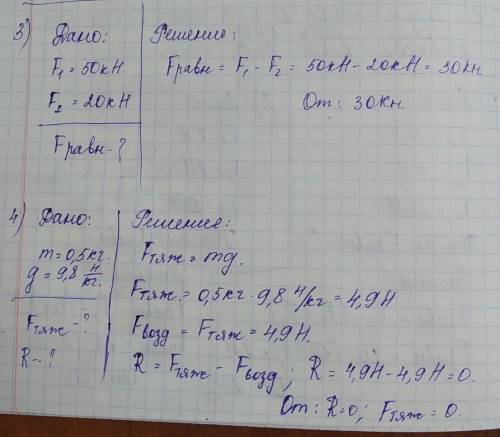 3) Дано:
F₁ = 50кН.
F₂ = 20кН
Fравн-?
Решение:
Fравн = F₁ - F₂ = 50кН - 20кН = 30кН.
От: 30кН.
4) Дано:
m = 0,5кг.
g = 9,8 Н/кг.
Fтяж-?
R-?
Решение:
Fтяж = mg.
Fтяж = 0,5кг · 9,8 Н/кг = 4,9Н
Fвозд = Fтяж = 4,9Н.
R = Fтяж - Fвозд; R = 4,9Н - 4,9Н = 0.
От: R=0; Fтяж = 0.